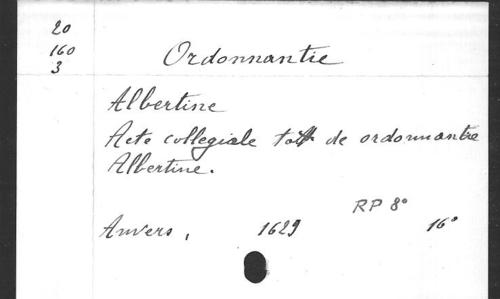 20
160
3
Ordonnantie
Albertine
Acte collegiale tot de ordonnantie
Albertine.
RP 8°
Anvers, 1629 16°